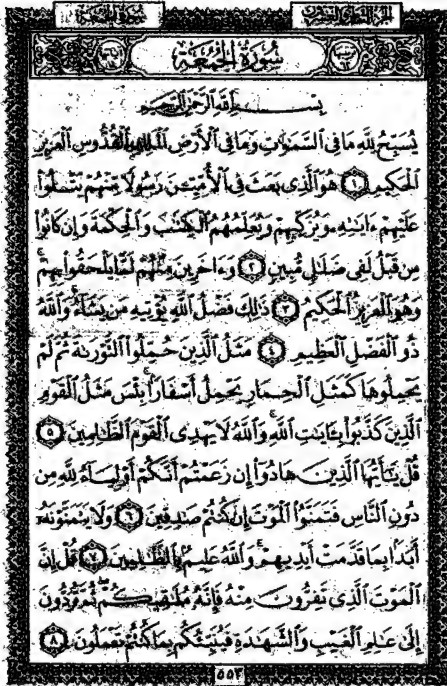 سُورَةُ الجُمُعَةِ
بِسْمِ اللَّهِ الرَّحْمَٰنِ الرَّحِيمِ
يُسَبِّحُ لِلَّهِ مَا فِي السَّمَٰوَٰتِ وَمَا فِي الْأَرْضِ الْمَلِكِ الْقُدُّوسِ الْعَزِيزِ
الْحَكِيمِ ١ هُوَ الَّذِي بَعَثَ فِي الْأُمِّيِّـۧنَ رَسُولًا مِّنْهُمْ يَتْلُوا۟
عَلَيْهِمْ ءَايَٰتِهِۦ وَيُزَكِّيهِمْ وَيُعَلِّمُهُمُ الْكِتَٰبَ وَالْحِكْمَةَ وَإِن كَانُوا۟
مِن قَبْلُ لَفِي ضَلَٰلٍ مُّبِينٍ ٢ وَءَاخَرِينَ مِنْهُمْ لَمَّا يَلْحَقُوا۟ بِهِمْ
وَهُوَ الْعَزِيزُ الْحَكِيمُ ٣ ذَٰلِكَ فَضْلُ اللَّهِ يُؤْتِيهِ مَن يَشَآءُ وَاللَّهُ
ذُو الْفَضْلِ الْعَظِيمِ ٤ مَثَلُ الَّذِينَ حُمِّلُوا۟ التَّوْرَىٰةَ ثُمَّ لَمْ
يَحْمِلُوهَا كَمَثَلِ الْحِمَارِ يَحْمِلُ أَسْفَارًۢا بِئْسَ مَثَلُ الْقَوْمِ
الَّذِينَ كَذَّبُوا۟ بِـَٔايَٰتِ اللَّهِ وَاللَّهُ لَا يَهْدِي الْقَوْمَ الظَّٰلِمِينَ ٥
قُلْ يَٰٓأَيُّهَا الَّذِينَ هَادُوٓا۟ إِن زَعَمْتُمْ أَنَّكُمْ أَوْلِيَآءُ لِلَّهِ مِن
دُونِ النَّاسِ فَتَمَنَّوُا۟ الْمَوْتَ إِن كُنتُمْ صَٰدِقِينَ ٦ وَلَا يَتَمَنَّوْنَهُۥٓ
أَبَدًۢا بِمَا قَدَّمَتْ أَيْدِيهِمْ وَاللَّهُ عَلِيمٌۢ بِالظَّٰلِمِينَ ٧ قُلْ إِنَّ
الْمَوْتَ الَّذِي تَفِرُّونَ مِنْهُ فَإِنَّهُۥ مُلَٰقِيكُمْ ثُمَّ تُرَدُّونَ
إِلَىٰ عَٰلِمِ الْغَيْبِ وَالشَّهَٰدَةِ فَيُنَبِّئُكُم بِمَا كُنتُمْ تَعْمَلُونَ ٨
٥٥٣